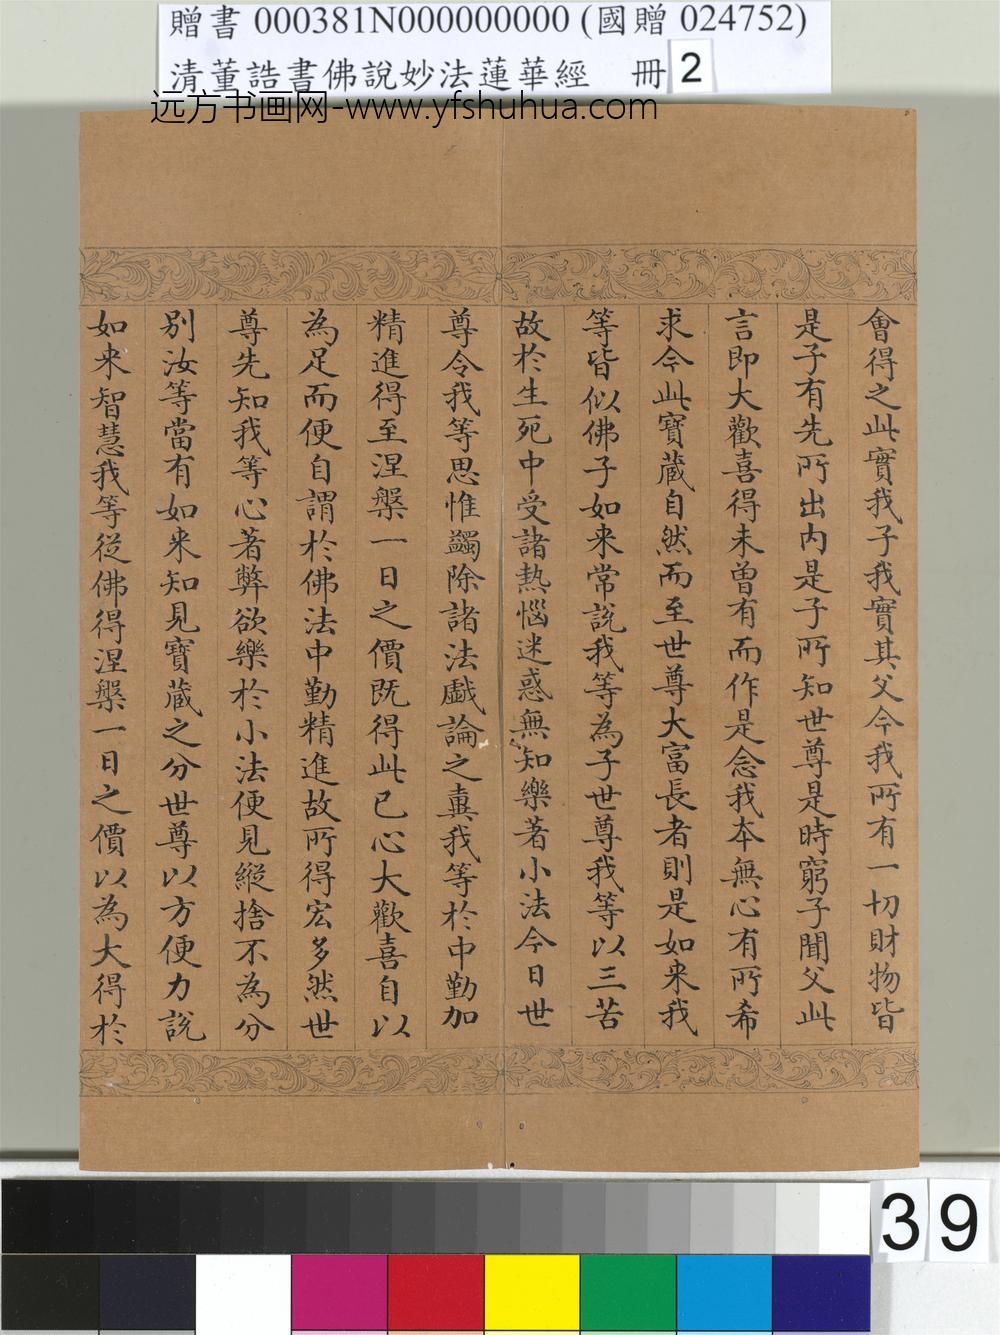 贈書 000381N000000000 (國贈 024752)
清董誥書佛說妙法蓮華經 冊 2
远方书画网-www.yfshuhua.com
會得之此實我子我實其父今我所有一切財物皆
是子有先所出内是子所知世尊是時窮子聞父此
言即大歡喜得未曾有而作是念我本無心有所希
求今此寶藏自然而至世尊大富長者則是如来我
等皆似佛子如来常說我等為子世尊我等以三苦
故於生死中受諸熱惱迷惑無知樂著小法今日世
尊令我等思惟蠲除諸法戲論之糞我等於中勤加
精進得至涅槃一日之價既得此已心大歡喜自以
為足而便自謂於佛法中勤精進故所得宏多然世
尊先知我等心著弊欲樂於小法便見縱捨不為分
别汝等當有如来知見寶藏之分世尊以方便力說
如来智慧我等從佛得涅槃一日之價以為大得於
39